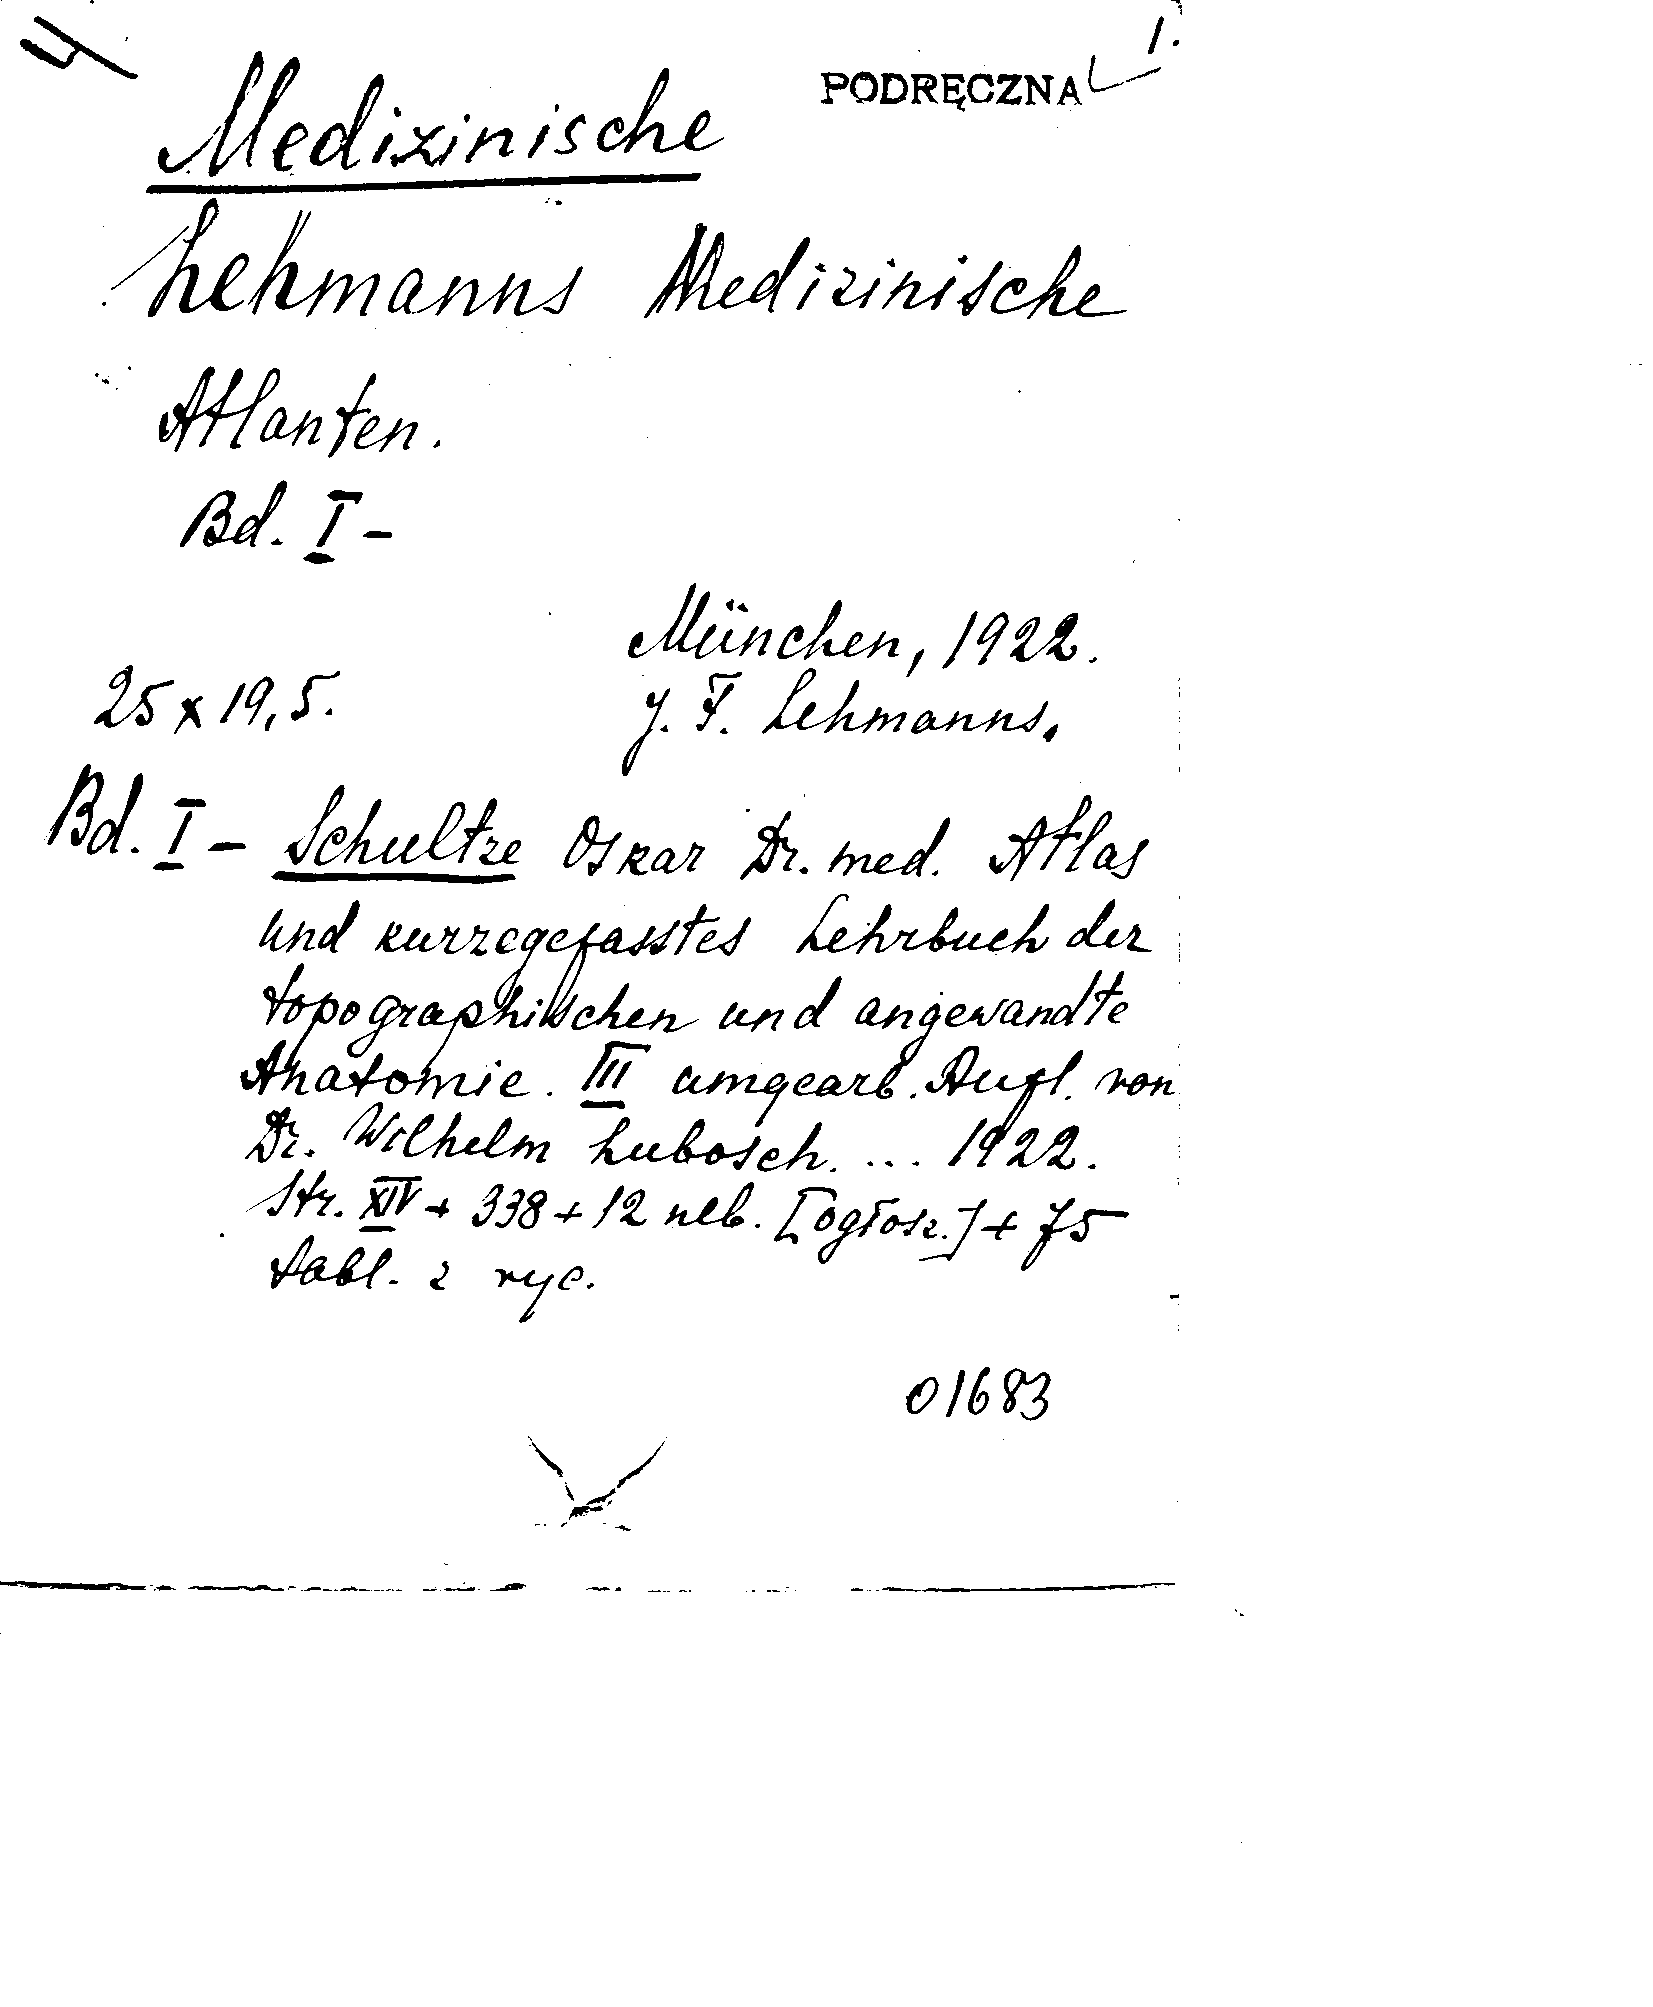 1.
PODRĘCZNA
Medizinische
Lehmanns Medizinische
Atlanten.
Bd. I -
München, 1922.
25 x 19,5.
J. F. Lehmanns.
Bd. I - Schultze Oskar Dr. med. Atlas
und kurzgefasstes Lehrbuch der
topographischen und angewandte
Anatomie. III umgearb. Aufl. von
Dr. Wilhelm Lubosch. ... 1922.
Str. XIV + 338 + 12 nlb. [ogłosz.] + 75
tabl. z ryc.
01683